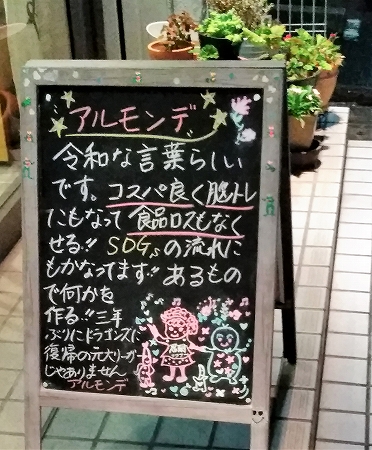 アルモンデ
令和な言葉らしい
です。コスパ良く脳トレ
にもなって食品ロスもなく
せる!! SDGsの流れに
もかなってます!! あるもの
で何かを
作る!!三年
ぶりにドラゴンズに
復帰の元大リーガー
じゃありません
アルモンデ